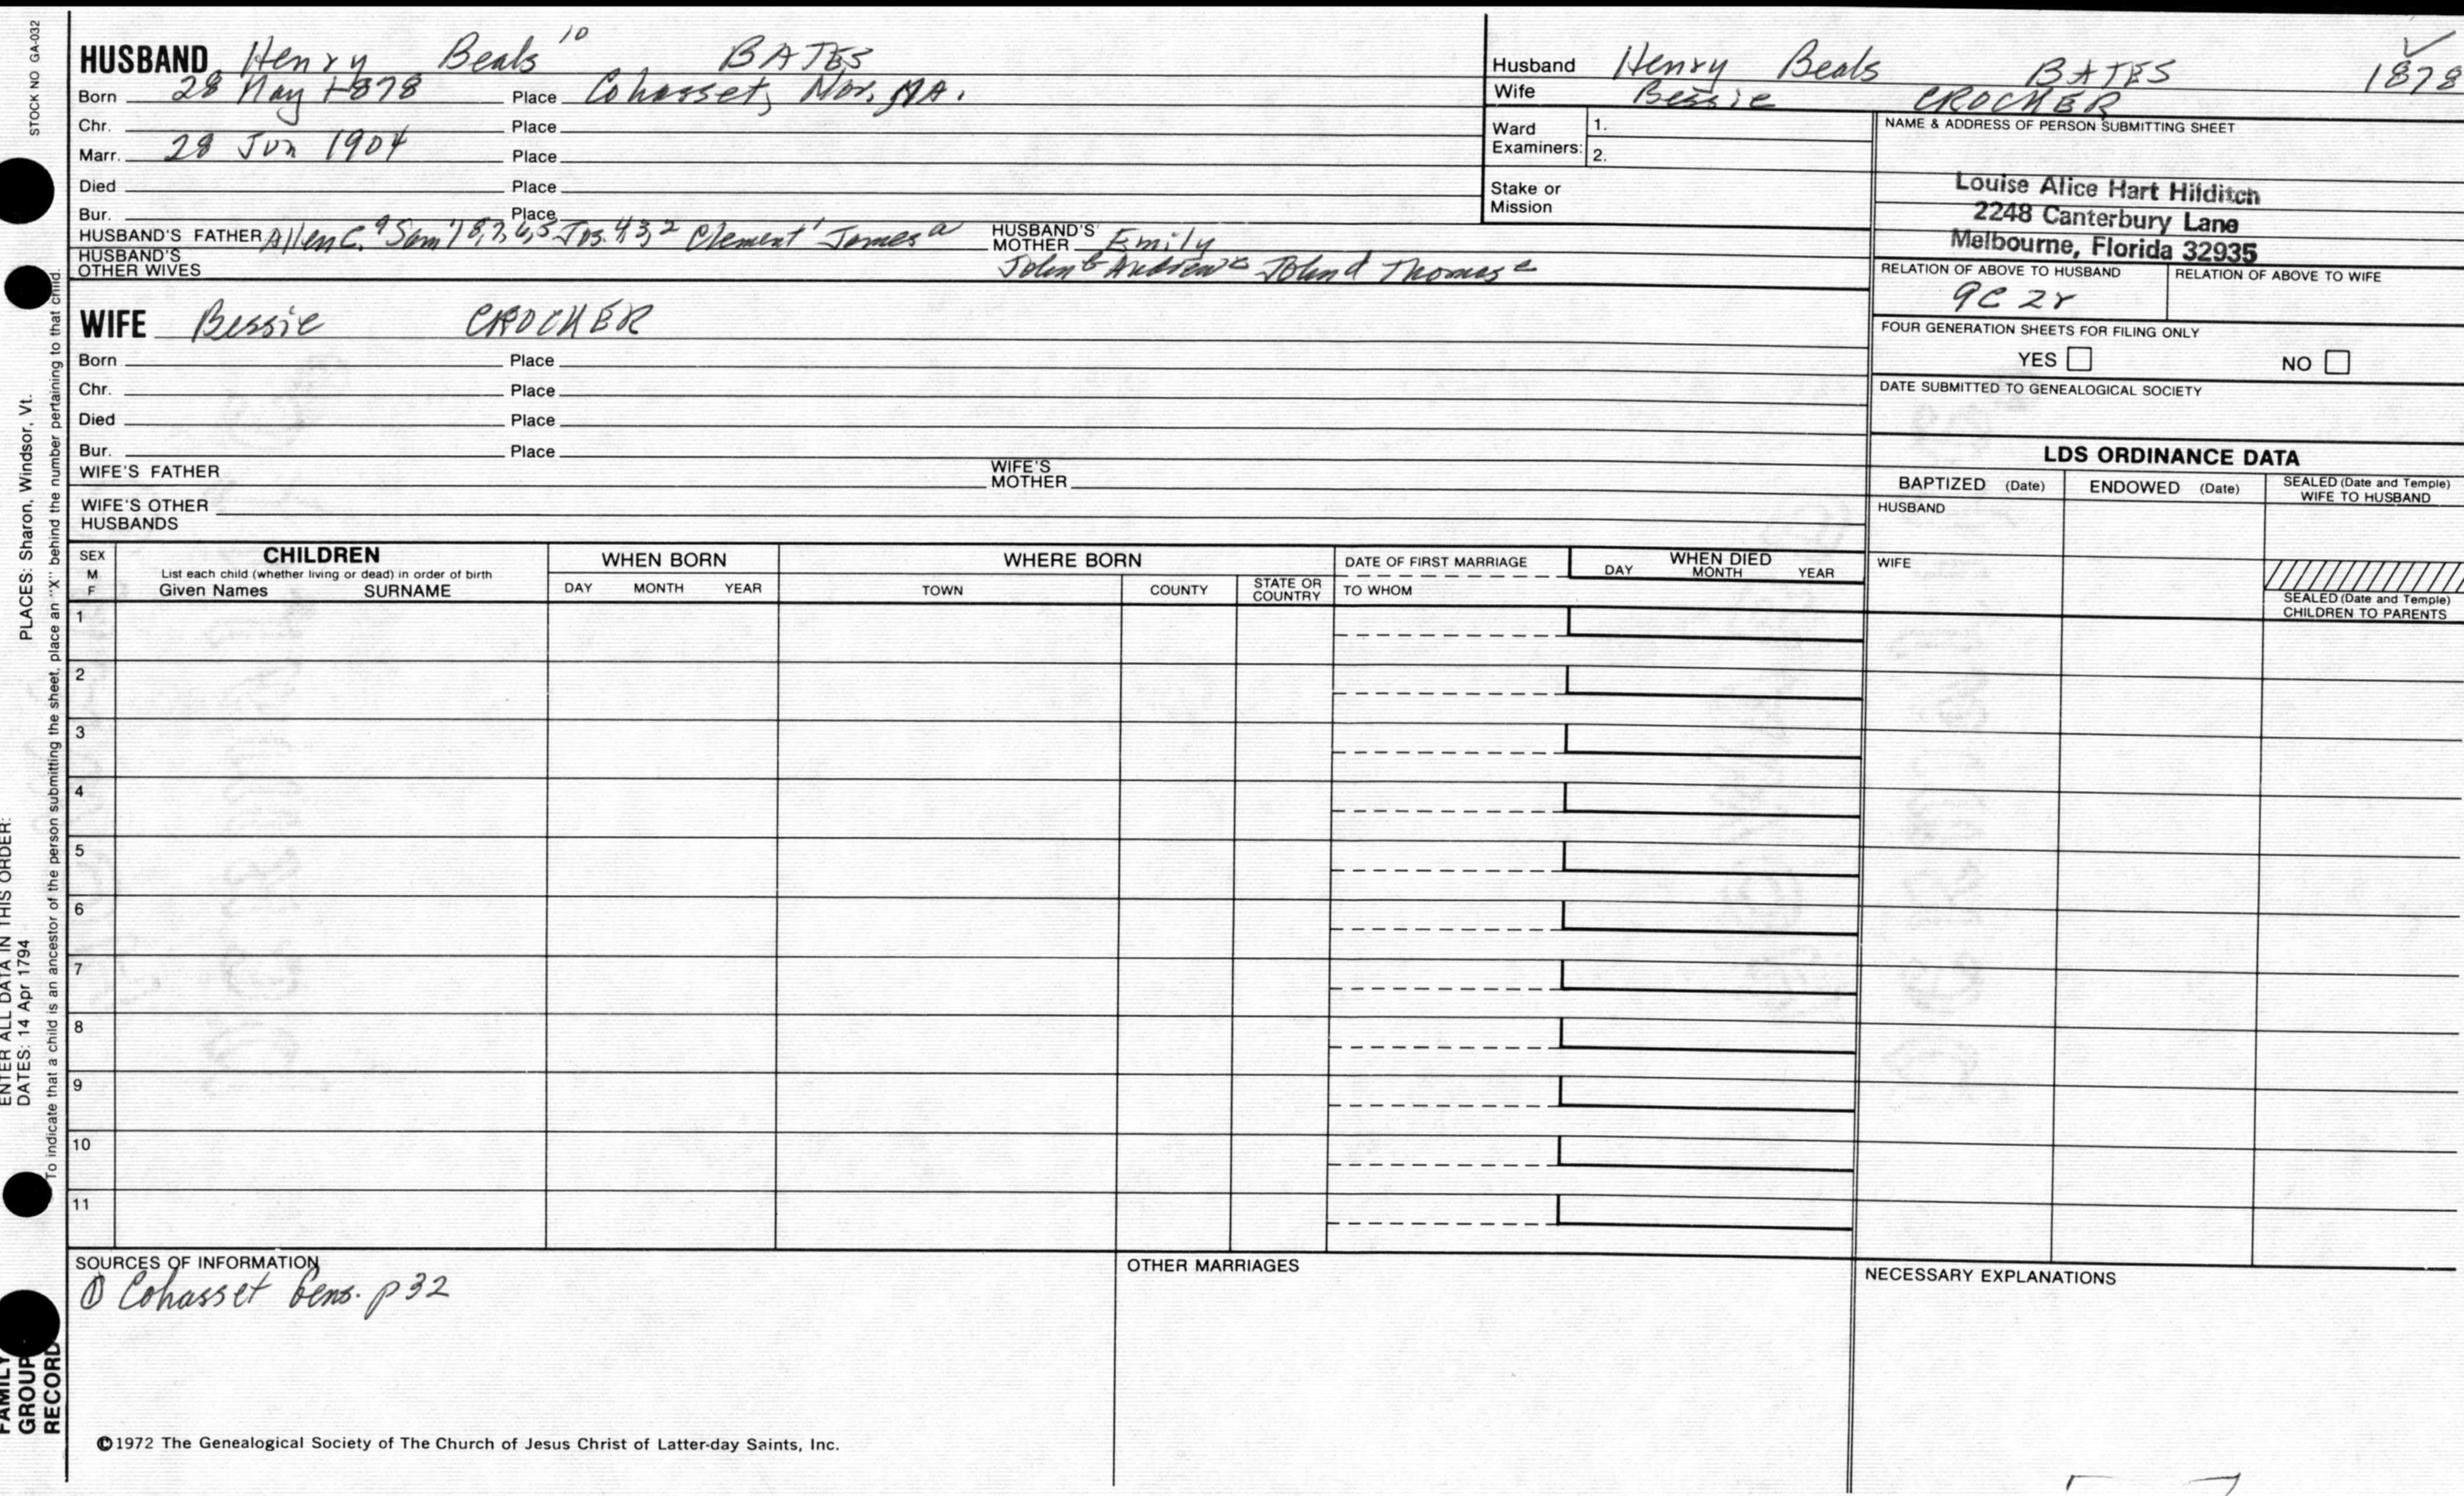 STOCK NO GA-032
HUSBAND Henry Beals 10 BATES
Born 28 May 1878 Place Cohasset, Nor. MA.
Chr. Place
Marr. 28 Jun 1904 Place
Died Place
Bur. Place
HUSBAND'S FATHER Allen C. 9 Sam'l 8,7,6,5 Jos. 4,3,2 Clement 1 James a HUSBAND'S MOTHER Emily
HUSBAND'S OTHER WIVES John b Andrew c John d Thomas e
WIFE Bessie CROCKER
Born Place
Chr. Place
Died Place
Bur. Place
WIFE'S FATHER WIFE'S MOTHER
WIFE'S OTHER HUSBANDS
Husband Henry Beals BATES 1878
Wife Bessie CROCKER
Ward Examiners: 1.
2.
Stake or Mission
NAME & ADDRESS OF PERSON SUBMITTING SHEET
Louise Alice Hart Hilditch
2248 Canterbury Lane
Melbourne, Florida 32935
RELATION OF ABOVE TO HUSBAND RELATION OF ABOVE TO WIFE
9C 2r
FOUR GENERATION SHEETS FOR FILING ONLY
YES NO
DATE SUBMITTED TO GENEALOGICAL SOCIETY
LDS ORDINANCE DATA
BAPTIZED (Date) ENDOWED (Date) SEALED (Date and Temple) WIFE TO HUSBAND
HUSBAND
WIFE
SEALED (Date and Temple)
CHILDREN TO PARENTS
SEX M F
CHILDREN
List each child (whether living or dead) in order of birth
Given Names SURNAME
WHEN BORN
DAY MONTH YEAR
WHERE BORN
TOWN COUNTY STATE OR COUNTRY
DATE OF FIRST MARRIAGE
TO WHOM
WHEN DIED
DAY MONTH YEAR
1
2
3
4
5
6
7
8
9
10
11
SOURCES OF INFORMATION
① Cohasset Gens. p 32
OTHER MARRIAGES
NECESSARY EXPLANATIONS
©1972 The Genealogical Society of The Church of Jesus Christ of Latter-day Saints, Inc.
To indicate that a child is an ancestor of the person submitting the sheet, place an "X" behind the number pertaining to that child.
ENTER ALL DATA IN THIS ORDER:
DATES: 14 Apr 1794 PLACES: Sharon, Windsor, Vt.
FAMILY
GROUP
RECORD